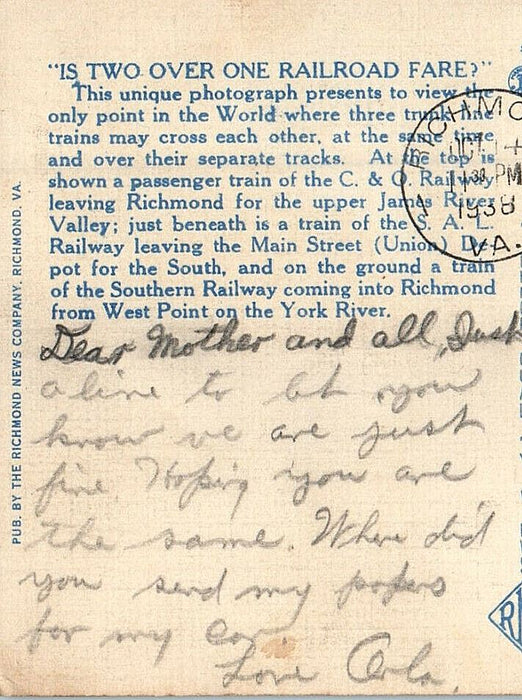 "IS TWO OVER ONE RAILROAD FARE?"
This unique photograph presents to view the
only point in the World where three trunk line
trains may cross each other, at the same time
and over their separate tracks. At the top is
shown a passenger train of the C. & O. Railway
leaving Richmond for the upper James River
Valley; just beneath is a train of the S. A. L.
Railway leaving the Main Street (Union) De-
pot for the South, and on the ground a train
of the Southern Railway coming into Richmond
from West Point on the York River.
RICHMO
OCT 14
11 30 PM
1938
VA.
PUB. BY THE RICHMOND NEWS COMPANY, RICHMOND, VA.
Dear Mother and all, Just
a line to let you
know we are just
fine Hoping you are
the same. Where did
you send my papers
for my car.
Love
R